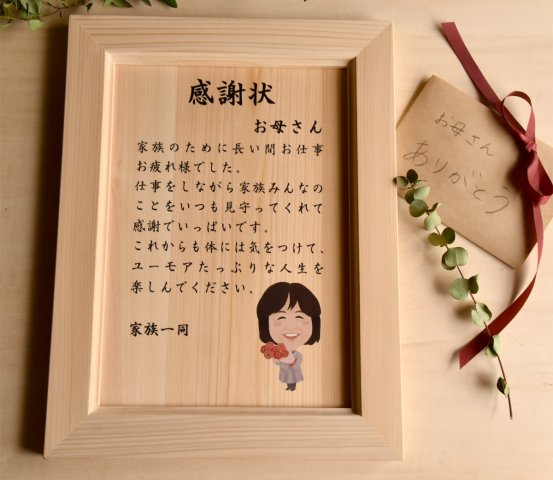 感謝状
お母さん
家族のために長い間お仕事
お疲れ様でした。
仕事をしながら家族みんなの
ことをいつも見守ってくれて
感謝でいっぱいです。
これからも体には気をつけて、
ユーモアたっぷりな人生を
楽しんでください。
家族一同
お母さん
ありがとう